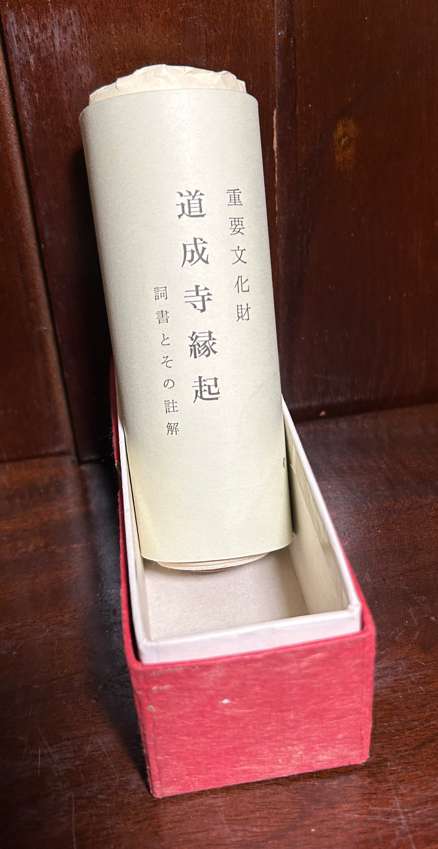 重要文化財
道成寺縁起
詞書とその註解